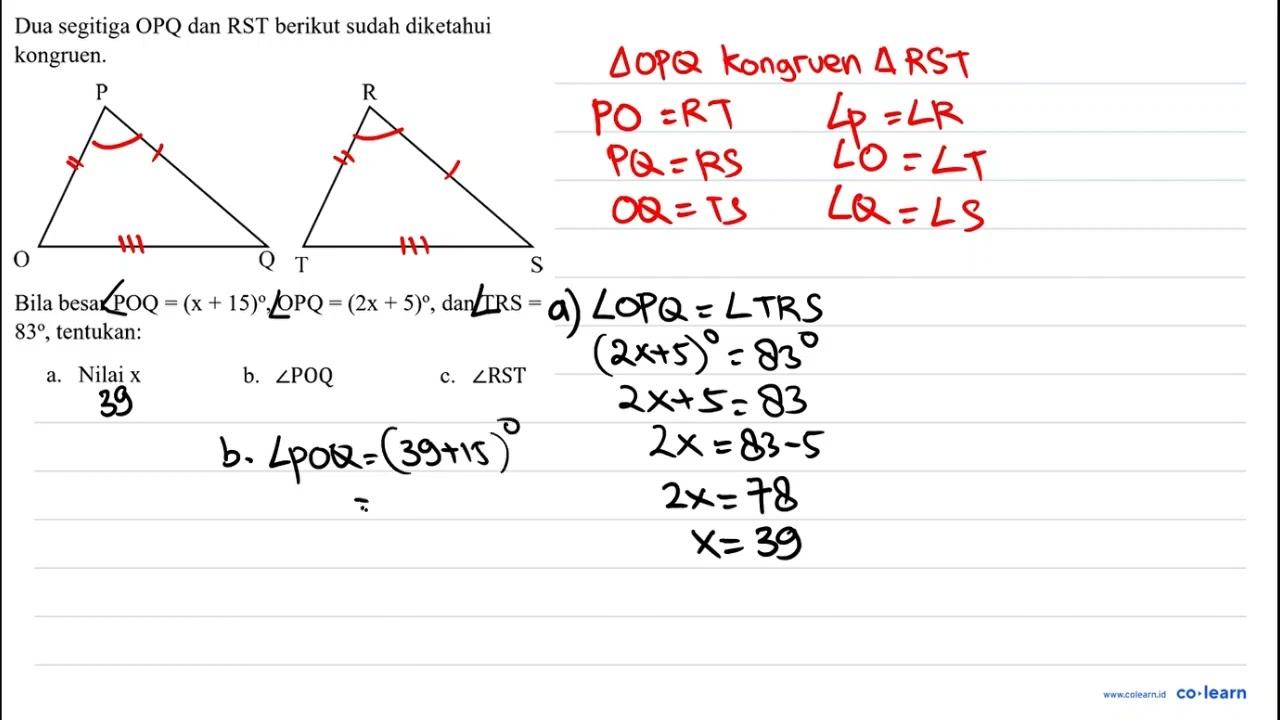 Dua segitiga OPQ dan RST berikut sudah diketahui
kongruen.
P
R
O
Q
T
S
Bila besar ∠POQ = (x + 15)º, ∠OPQ = (2x + 5)º, dan ∠TRS =
83º, tentukan:
a. Nilai x
b. ∠POQ
c. ∠RST
39
b. ∠POQ = (39+15)⁰
=
ΔOPQ kongruen ΔRST
PO = RT
∠P = ∠R
PQ = RS
∠O = ∠T
OQ = TS
∠Q = ∠S
a) ∠OPQ = ∠TRS
(2x+5)⁰ = 83⁰
2x+5 = 83
2x = 83-5
2x = 78
x = 39
www.colearn.id co·learn